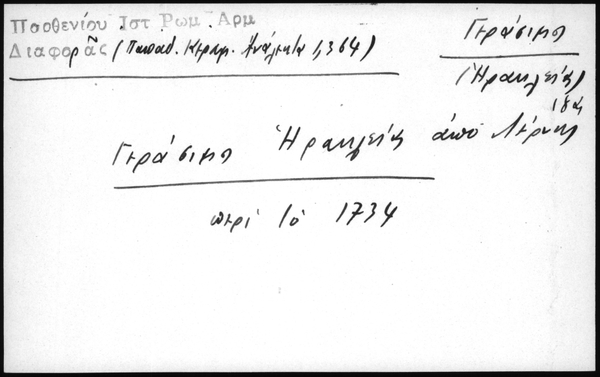 Παρθενίου Ιστ Ρωμ Αρμ
Διαφορᾶς (Παπαδ. Κεραμ. Ἀνάλεκτα 1,364)
Γεράσιμο
(Ἡρακλείας)
Γεράσιμο Ἡρακλείας ἀπὸ Λέρνης
περὶ τὸ 1734